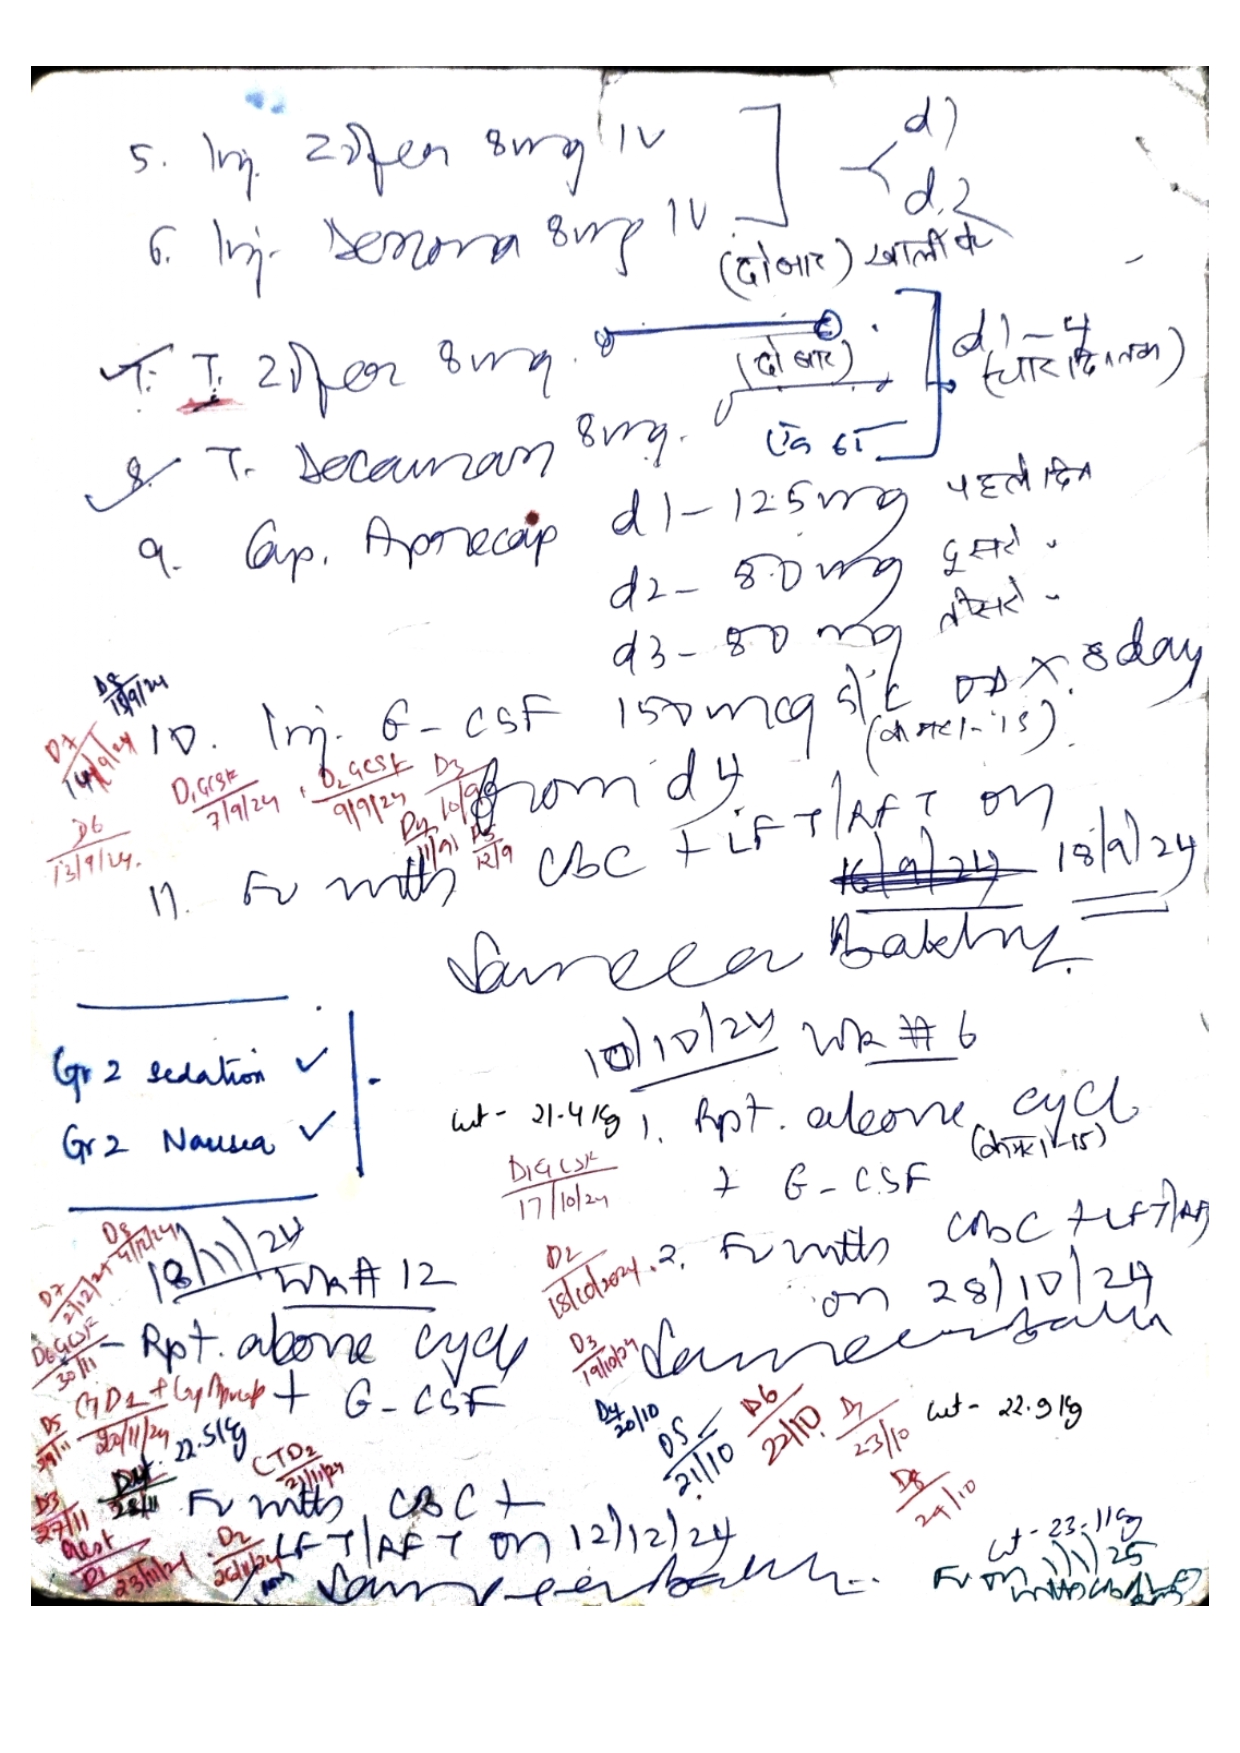 5. Inj. Zofer 8mg IV
d1
d2
6. Inj. Dexona 8mg IV
(दो बार) खाली पेट
7. T. Zofer 8mg.
(दो बार)
d1-4
(चार दिन तक)
8. T. 8mg.
9. Cap. Aprecap d1 - 125mg पहले दिन
d2 - 80mg दूसरे "
d3 - 80mg तीसरे "
D8
15/9/24
D7
14/9/24
10. Inj. G-CSF 150mcg s/c OD x 8 day
from d4
D1 GCSF
7/9/24
D2 GCSF
9/9/24
D3
10/9
D4
11/9
D5
12/9
D6
13/9/24.
11. Fu with CBC + LFT/RFT on
16/9/24 18/9/24
Sameer Bakhshi
Gr 2 sedation ✓
Gr 2 Nausea ✓
10/10/24 Wk # 6
wt - 21.4 kg
1. Rpt. above cycle
+ G-CSF
D1 GCSF
17/10/24
2. Fu with CBC + LFT/RFT
on 28/10/24
D2
18/10/2024
D3
19/10/24
Sameer Bakhshi
D4
20/10
D5
21/10
D6
22/10
D7
23/10
D8
24/10
wt - 22.9 kg
18/11/24
Wk # 12
D8
4/12/24
D7
2/12/24
- Rpt. above cycle
+ G-CSF
D6 GCSF
30/11
D5
29/11
CTD1 + Cap Aprecap
20/11/24
22.5kg
CTD2
21/11/24
D4
28/11
D3
27/11
Fu with CBC +
LFT/RFT on 12/12/24
D2
26/11/24
D1
23/11/24
Sameer Bakhshi
wt - 23.1 kg
Fu on 1/1/25
with